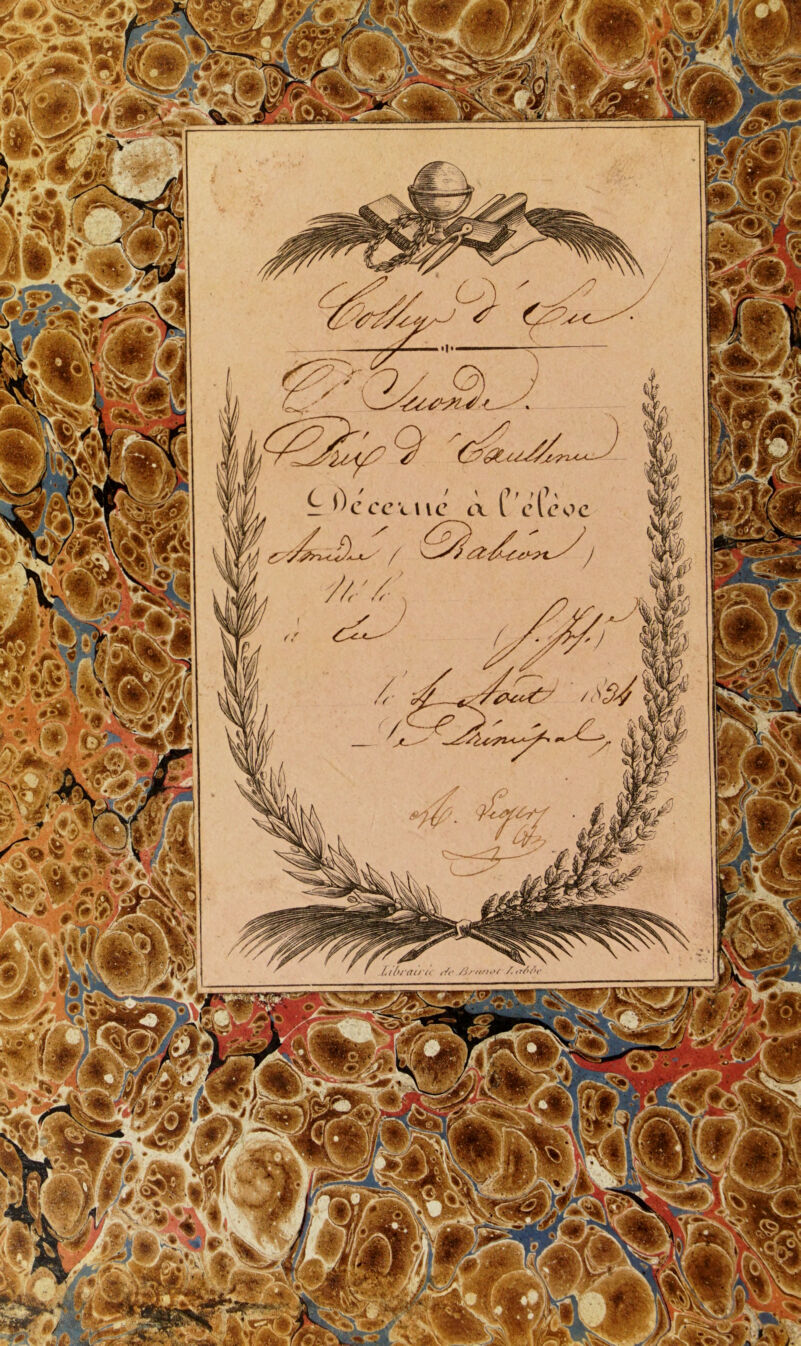 College d'Eu.
Dr Seconde.
Prix d'Excellence
Décerné à l'élève
Amédée (Rabion)
Né le
à Eu (S. Infre.)
le 4 Août 1834
Le Principal,
A. Leger
Librairie de Brunot Labbe